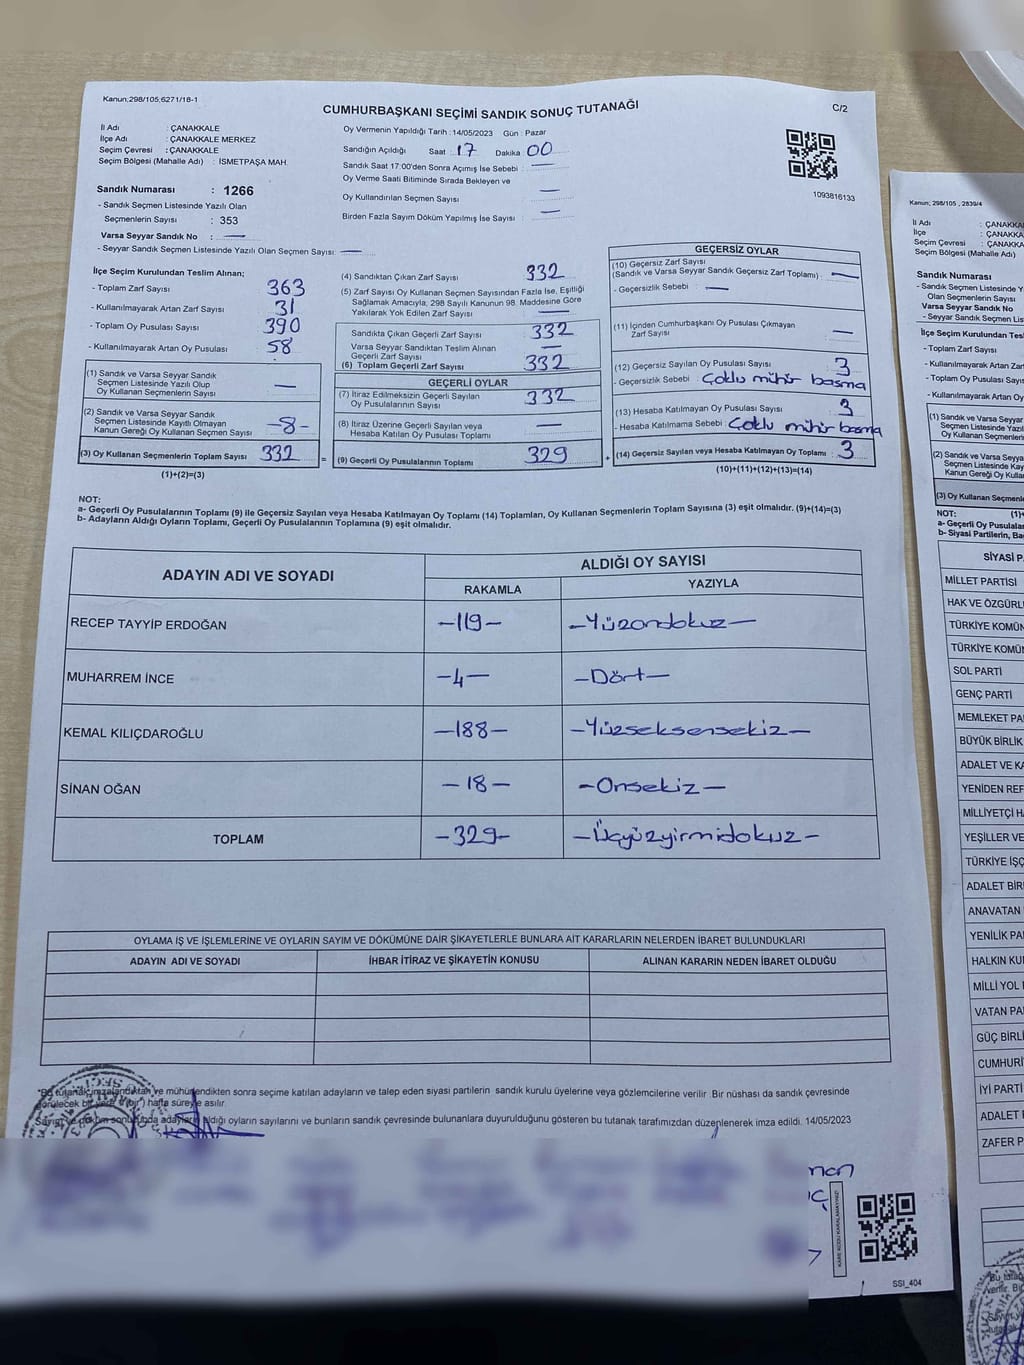 Kanun;298/105;6271/18-1
CUMHURBAŞKANI SEÇİMİ SANDIK SONUÇ TUTANAĞI
C/2
İl Adı : ÇANAKKALE
İlçe Adı : ÇANAKKALE MERKEZ
Seçim Çevresi : ÇANAKKALE
Seçim Bölgesi (Mahalle Adı) : İSMETPAŞA MAH.
Sandık Numarası : 1266
- Sandık Seçmen Listesinde Yazılı Olan
Seçmenlerin Sayısı : 353
Varsa Seyyar Sandık No : —
- Seyyar Sandık Seçmen Listesinde Yazılı Olan Seçmen Sayısı : —
Oy Vermenin Yapıldığı Tarih : 14/05/2023 Gün : Pazar
Sandığın Açıldığı Saat 17 Dakika 00
Sandık Saat 17:00'den Sonra Açımış İse Sebebi : —
Oy Verme Saati Bitiminde Sırada Bekleyen ve
Oy Kullandırılan Seçmen Sayısı —
Birden Fazla Sayım Döküm Yapılmış İse Sayısı : —
1093816133
İlçe Seçim Kurulundan Teslim Alınan;
- Toplam Zarf Sayısı 363
- Kullanılmayarak Artan Zarf Sayısı 31
- Toplam Oy Pusulası Sayısı 390
- Kullanılmayarak Artan Oy Pusulası 58
(1) Sandık ve Varsa Seyyar Sandık
Seçmen Listesinde Yazılı Olup
Oy Kullanan Seçmenlerin Sayısı —
(2) Sandık ve Varsa Seyyar Sandık
Seçmen Listesinde Kayıtlı Olmayan
Kanun Gereği Oy Kullanan Seçmen Sayısı -8-
(3) Oy Kullanan Seçmenlerin Toplam Sayısı 332
(1)+(2)=(3)
(4) Sandıktan Çıkan Zarf Sayısı 332
(5) Zarf Sayısı Oy Kullanan Seçmen Sayısından Fazla İse, Eşitliği
Sağlamak Amacıyla, 298 Sayılı Kanunun 98. Maddesine Göre
Yakılarak Yok Edilen Zarf Sayısı —
Sandıkta Çıkan Geçerli Zarf Sayısı 332
Varsa Seyyar Sandıktan Teslim Alınan
Geçerli Zarf Sayısı —
(6) Toplam Geçerli Zarf Sayısı 332
GEÇERLİ OYLAR
(7) İtiraz Edilmeksizin Geçerli Sayılan
Oy Pusulalarının Sayısı 332
(8) İtiraz Üzerine Geçerli Sayılan veya
Hesaba Katılan Oy Pusulası Toplamı —
= (9) Geçerli Oy Pusulalarının Toplamı 329
GEÇERSİZ OYLAR
(10) Geçersiz Zarf Sayısı
(Sandık ve Varsa Seyyar Sandık Geçersiz Zarf Toplamı) : —
- Geçersizlik Sebebi : —
(11) İçinden Cumhurbaşkanı Oy Pusulası Çıkmayan
Zarf Sayısı —
(12) Geçersiz Sayılan Oy Pusulası Sayısı 3
- Geçersizlik Sebebi : Çoklu mühür basma
(13) Hesaba Katılmayan Oy Pusulası Sayısı 3
- Hesaba Katılmama Sebebi : Çoklu mühür basma
+ (14) Geçersiz Sayılan veya Hesaba Katılmayan Oy Toplamı : 3
(10)+(11)+(12)+(13)=(14)
NOT:
a- Geçerli Oy Pusulalarının Toplamı (9) ile Geçersiz Sayılan veya Hesaba Katılmayan Oy Toplamı (14) Toplamları, Oy Kullanan Seçmenlerin Toplam Sayısına (3) eşit olmalıdır. (9)+(14)=(3)
b- Adayların Aldığı Oyların Toplamı, Geçerli Oy Pusulalarının Toplamına (9) eşit olmalıdır.
ADAYIN ADI VE SOYADI
ALDIĞI OY SAYISI
RAKAMLA YAZIYLA
RECEP TAYYİP ERDOĞAN -119- -Yüzondokuz-
MUHARREM İNCE -4- -Dört-
KEMAL KILIÇDAROĞLU -188- -Yüzseksensekiz-
SİNAN OĞAN -18- -Onsekiz-
TOPLAM -329- -Üçyüzyirmidokuz-
OYLAMA İŞ VE İŞLEMLERİNE VE OYLARIN SAYIM VE DÖKÜMÜNE DAİR ŞİKAYETLERLE BUNLARA AİT KARARLARIN NELERDEN İBARET BULUNDUKLARI
ADAYIN ADI VE SOYADI İHBAR İTİRAZ VE ŞİKAYETİN KONUSU ALINAN KARARIN NEDEN İBARET OLDUĞU
"Bu tutanak imzalandıktan ve mühürlendikten sonra seçime katılan adayların ve talep eden siyasi partilerin sandık kurulu üyelerine veya gözlemcilerine verilir .Bir nüshası da sandık çevresinde
görülecek bir yere ("bir") hafta süreyle asılır.
Sayım ve döküm sonucunda adayların aldığı oyların sayılarını ve bunların sandık çevresinde bulunanlara duyurulduğunu gösteren bu tutanak tarafımızdan düzenlenerek imza edildi. 14/05/2023
KARE KODU KARALAMAYINIZ!
SSI_404
Kanun; 298/105 , 2839/4
İl Adı : ÇANAKKA
İlçe : ÇANAKKA
Seçim Çevresi : ÇANAKKA
Seçim Bölgesi (Mahalle Adı)
Sandık Numarası
- Sandık Seçmen Listesinde Y
Olan Seçmenlerin Sayısı
Varsa Seyyar Sandık No
- Seyyar Sandık Seçmen Lis
İlçe Seçim Kurulundan Tes
- Toplam Zarf Sayısı
- Kullanılmayarak Artan Zar
- Toplam Oy Pusulası Sayıs
- Kullanılmayarak Artan O
(1) Sandık ve Varsa Seyya
Seçmen Listesinde Yaz
Oy Kullanan Seçmenle
(2) Sandık ve Varsa Seyya
Seçmen Listesinde Ka
Kanun Gereği Oy Kull
(3) Oy Kullanan Seçmenle
NOT: (1)+
a- Geçerli Oy Pusulalar
b- Siyasi Partilerin, Ba
SİYASİ P
MİLLET PARTİSİ
HAK VE ÖZGÜRL
TÜRKİYE KOMÜN
TÜRKİYE KOMÜ
SOL PARTİ
GENÇ PARTİ
MEMLEKET PA
BÜYÜK BİRLİK
ADALET VE KA
YENİDEN REF
MİLLİYETÇİ H
YEŞİLLER VE
TÜRKİYE İŞÇ
ADALET BİR
ANAVATAN
YENİLİK PA
HALKIN KU
MİLLİ YOL
VATAN PA
GÜÇ BİRLİ
CUMHURİ
İYİ PARTİ
ADALET
ZAFER P